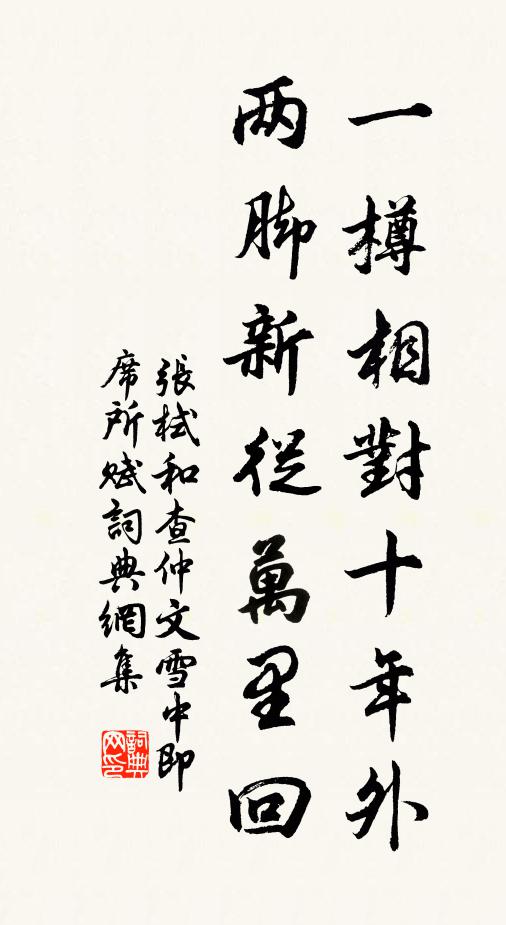 一樽相對十年外
两脚新從萬里回
張栻和查仲文雪中即
席所赋詞典網集
詞典网印